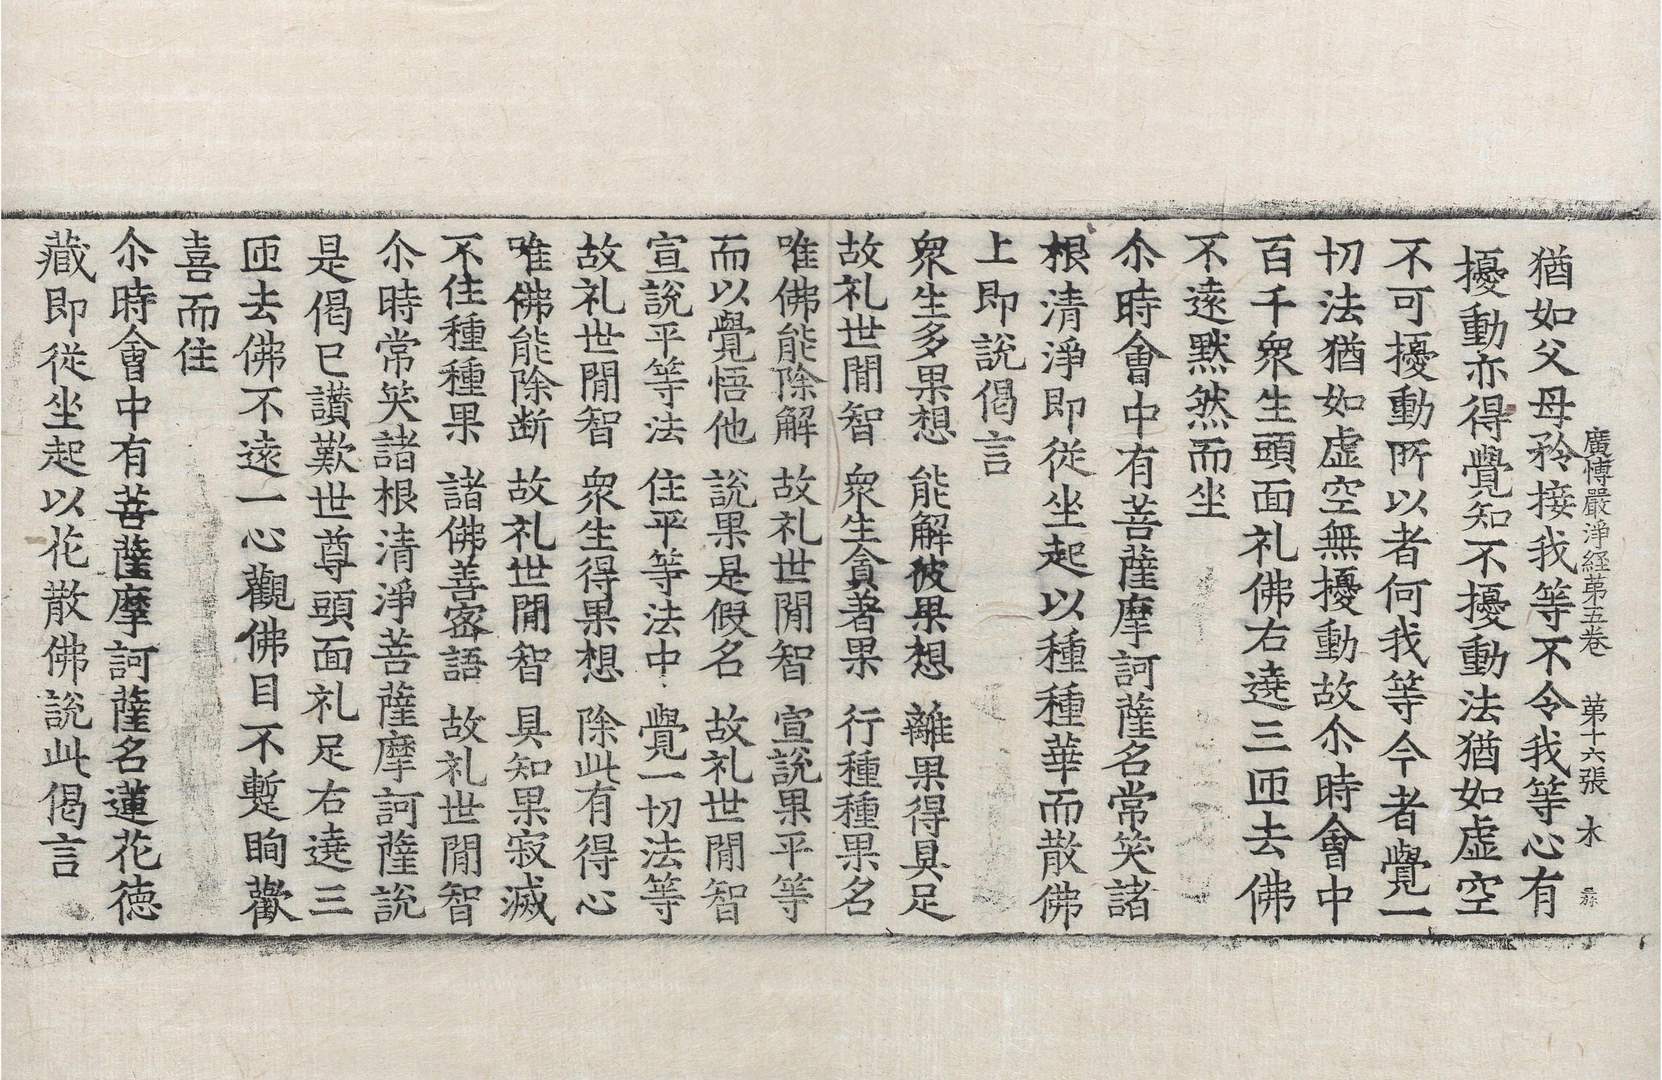 廣博嚴淨経第五卷 第十六張 木
猶如父母矜接我等不令我等心有
擾動亦得覺知不擾動法猶如虛空
不可擾動所以者何我等今者覺一
切法猶如虛空無擾動故尒時會中
百千衆生頭面礼佛右遶三匝去佛
不遠黙然而坐
尒時會中有菩薩摩訶薩名常笑諸
根清淨即從坐起以種種華而散佛
上即說偈言
衆生多果想 能解彼果想 離果得具足
故礼世閒智 衆生貪著果 行種種果名
唯佛能除解 故礼世閒智 宣說果平等
而以覺悟他 說果是假名 故礼世閒智
宣說平等法 住平等法中 覺一切法等
故礼世閒智 衆生得果想 除此有得心
唯佛能除断 故礼世閒智 具知果寂滅
不住種種果 諸佛善密語 故礼世閒智
尒時常笑諸根清淨菩薩摩訶薩說
是偈已讃歎世尊頭面礼足右遶三
匝去佛不遠一心觀佛目不蹔眴歡
喜而住
尒時會中有菩薩摩訶薩名蓮花德
藏即從坐起以花散佛說此偈言